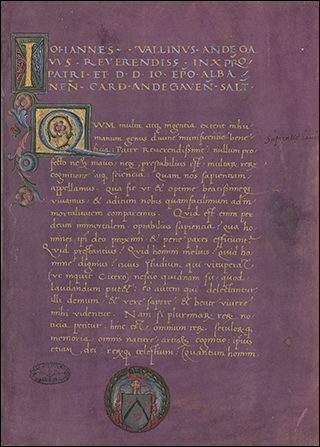 IOHANNES VALLINVS ANDEGA
VVS REVERENDISS INXPO
PATRI ET D D IO EPO ALBA
NEN CARD ANDEGAVEN SALT
QVVM multa atq ingentia extent in hu
manum genus divine munificentie bene
ficia: Pater Reverendissime nullum pro
fecto neq maius neq prestabilius est multar rer
cognitione atq sciencia. Quam nos sapientiam
appellamus. qua fit vt & optime beatissimeq
vivamus & aditum nobis quam facilimum ad im
mortalitatem comparemus. Quid est enim per
deum immortalem optabilius sapiencia: qua ho
mines ipi deo proximi & pene pares efficiuntur
Quid prestantius: Quid homini melius: quid ho
mine dignius: cuius studium qui vituperat
vt inquit Cicero: nescio quidnam sit quod
laudandum putet: Eo autem qui delectantur
illi demum & vere sapere & beate vivere
mihi videntur. Nam si plurimar rer no
ticia petitur hinc est omnium rer seculorq
memoria omnis nature artisq cognitio ipius
etiam dei rerq celestium: Quantum homini